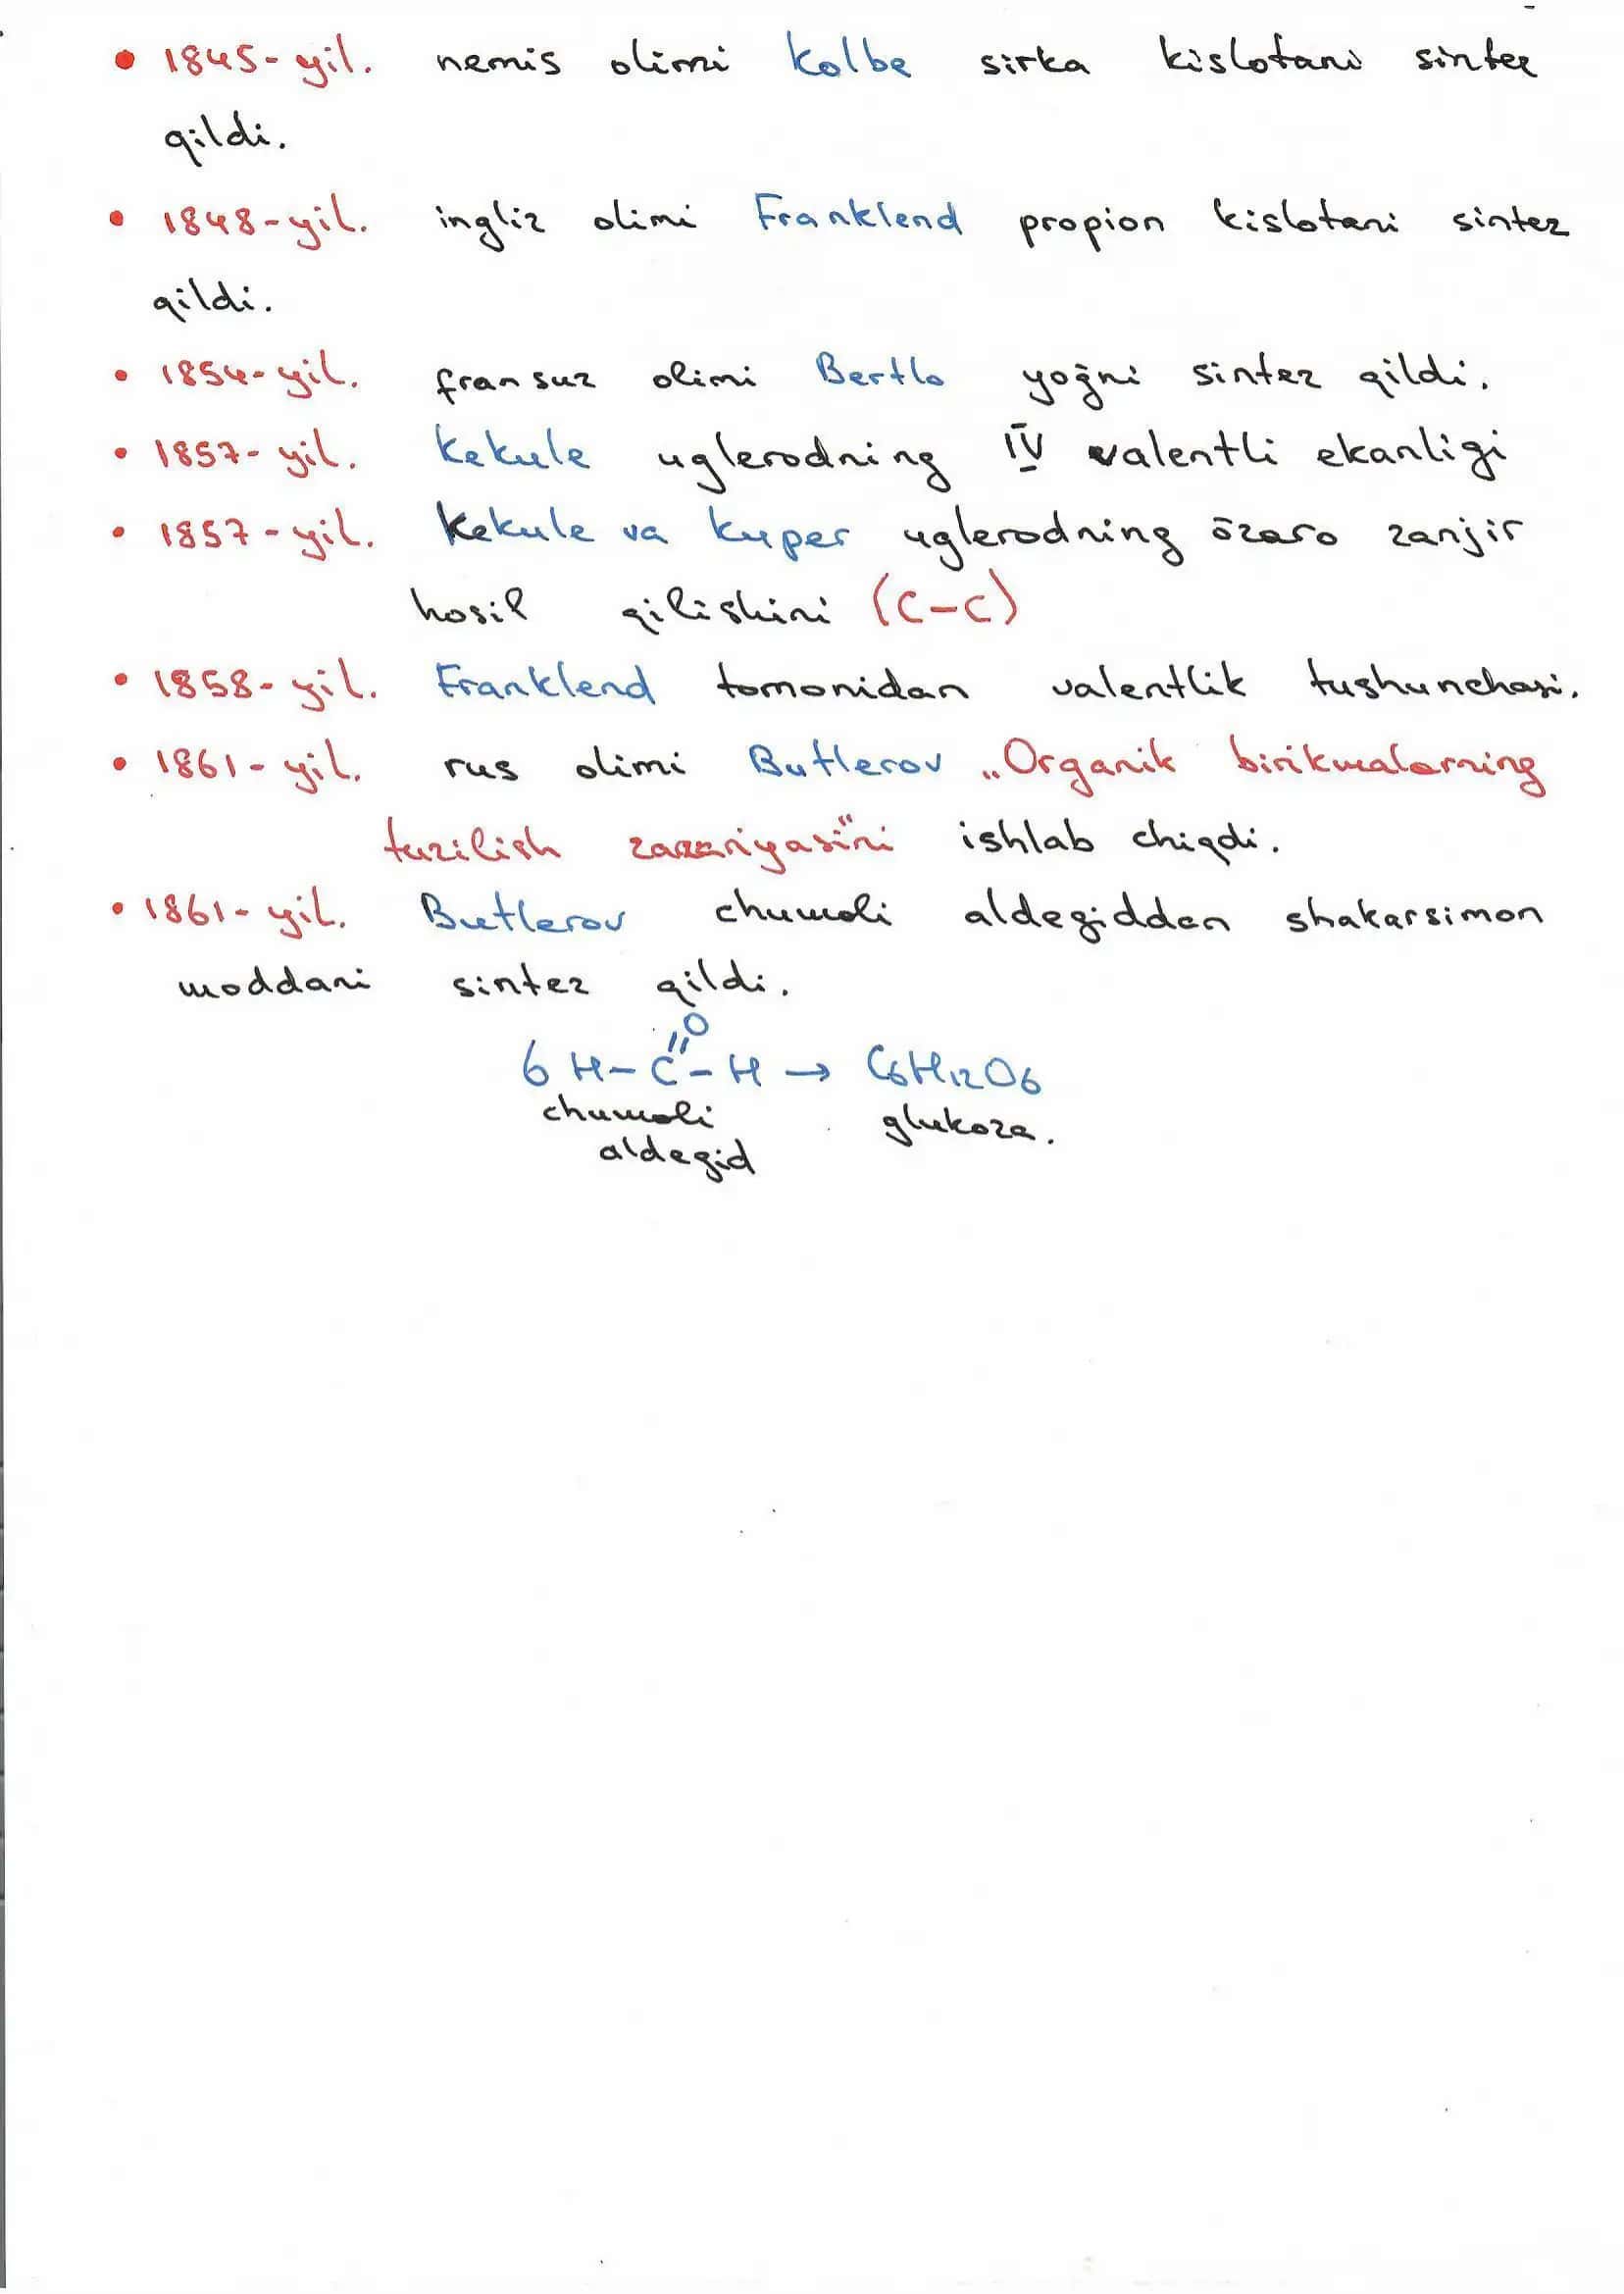 • 1845-yil. nemis olimi Kolbe sirka kislotani sintez
qildi.
• 1848-yil. ingliz olimi Franklend propion kislotani sintez
qildi.
• 1854-yil. fransuz olimi Bertlo yoḡni sintez qildi.
• 1857-yil. Kekule uglerodning IV valentli ekanligi
• 1857-yil. Kekule va Kuper uglerodning ōzaro zanjir
hosil qilishini (C-C)
• 1858-yil. Franklend tomonidan valentlik tushunchasi.
• 1861-yil. rus olimi Butlerov „Organik birikmalarning
tuzilish nazariyasi"ni ishlab chiqdi.
• 1861-yil. Butlerov chumoli aldegiddan shakarsimon
moddani sintez qildi.
O
6 H-C-H → C6H12O6
chumoli glukoza.
aldegid